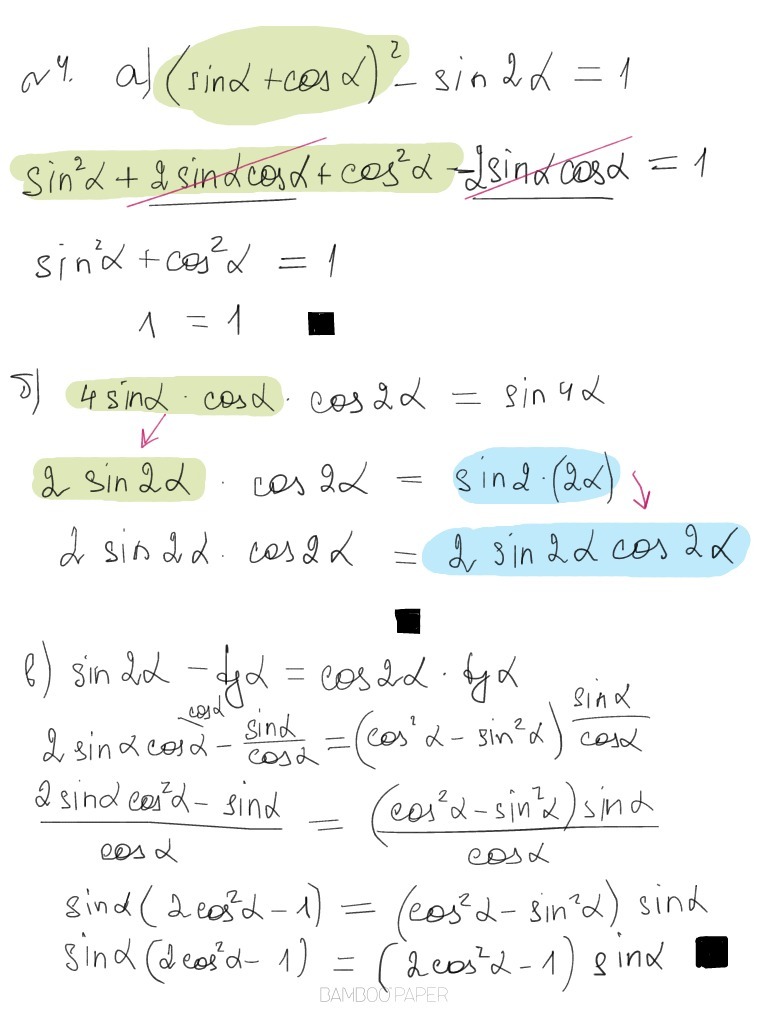 №4. а) (sinα + cos α)² - sin 2α = 1
sin²α + 2 sinα cosα + cos²α - 2 sinα cosα = 1
sin²α + cos²α = 1
1 = 1 ■
б) 4 sinα · cosα · cos 2α = sin 4α
2 sin 2α · cos 2α = sin 2·(2α)
2 sin 2α · cos 2α = 2 sin 2α cos 2α
■
в) sin 2α - tgα = cos 2α · tgα
2 sin α cosα \cosα - sinα/cosα = (cos²α - sin²α) sinα/cosα
(2 sinα cos²α - sinα)/cosα = ((cos²α - sin²α) sinα)/cosα
sinα (2cos²α - 1) = (cos²α - sin²α) sinα
sinα (2cos²α - 1) = (2cos²α - 1) sinα ■
BAMBOO PAPER